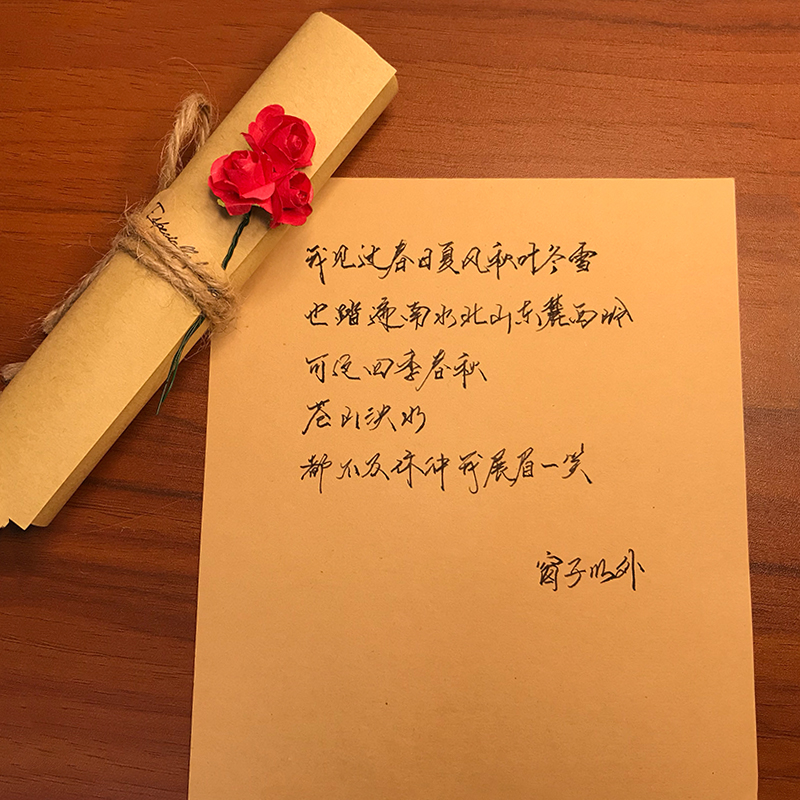 Especially
我见过春日夏风秋叶冬雪
也踏遍南水北山东麓西岭
可这四季春秋
苍山泱水
都不及你冲我展眉一笑
窗子以外